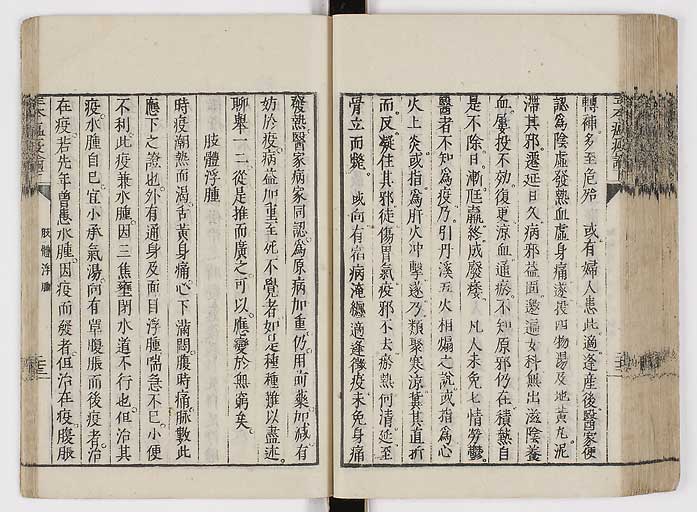 轉補多至危殆　或有婦人患此適逢産後醫家便
認為陰虛發熱血虛身痛遂投四物湯及地黄丸泥
滯其邪遷延日久病邪益固邀遍女科無出滋陰養
血屢投不効復更涼血通瘀不知原邪仍在積熱自
是不除日漸尪羸終成廢痿　凡人未免七情勞鬱
醫者不知為疫乃引丹溪五火相煽之説或指為心
火上炎或指為肝火冲擊遂乃類聚寒涼冀其直折
而反凝住其邪徒傷胃氣疫邪不去瘀熱何清延至
骨立而斃　或向有宿病淹纏適逢微疫未免身痛
發熱醫家病家同認為原病加重仍用前藥加減有
妨於疫病益加重至死不覺者如是種種難以盡述
聊舉一二從是推而廣之可以應變於無窮矣
肢體浮腫
時疫潮熱而渴舌黄身痛心下滿悶腹時痛脉數此
應下之證也外有通身及面目浮腫喘急不已小便
不利此疫兼水腫因三焦壅閉水道不行也但治其
疫水腫自已宜小承氣湯向有單腹脹而後疫者治
在疫若先年曾患水腫因疫而發者但治在疫腹脹
肢體浮腫